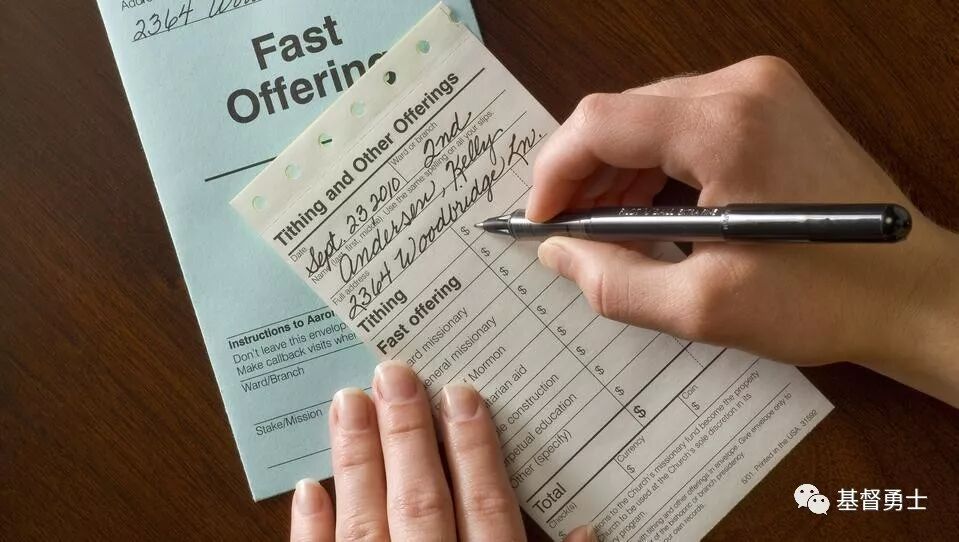 2364
Fast
Offering
Instructions to Aaron
Don't leave this envelop
Make callback visits whe
Ward/Branch
Stake/Mission
Tithing and Other Offerings
Date
Ward or branch
Sept. 23 2010 2nd
Name (last, first, middle). Use the same spelling on all your slips.
Andersen, Kelly
Full address
2364 Woodbridge, Ln.
Tithing $
Fast offering $
ard missionary $
General missionary $
Mormon $
tarian aid $
le construction $
rpetual education $
Other (specify) $
Total $
Check(s)
Currency
$
Coin
$
ations to the Church's missionary fund become the property
Church to be used at the Church's sole discretion in its
ry program.
with tithing and other offerings in envelope. Give envelope only to
of the bishopric or branch presidency.
our own records.
6/01. Printed in the USA. 31592
基督勇士